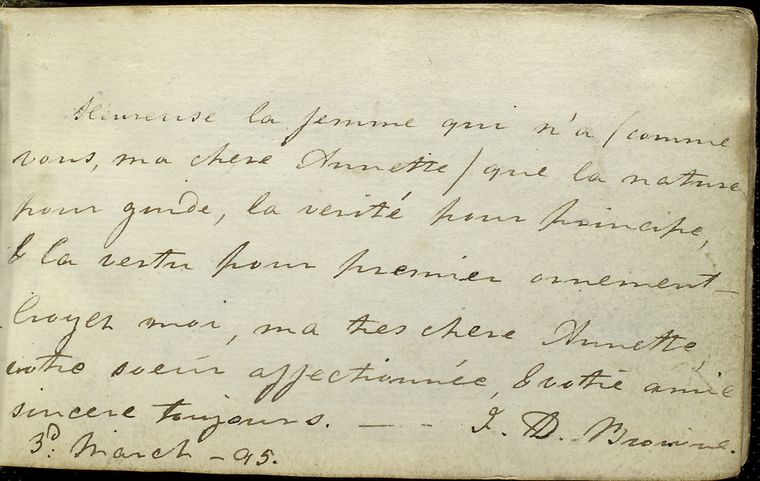 Heureuse la femme qui n'a (comme
vous, ma chere Annette) que la nature
pour guide, la verité pour principe,
& la vertu pour premier ornement –
Croyez moi, ma tres chere Annette,
votre soeur affectionnée, & votre amie
sincere toujours. — – – J. D. Browne.
3d. March – 95.